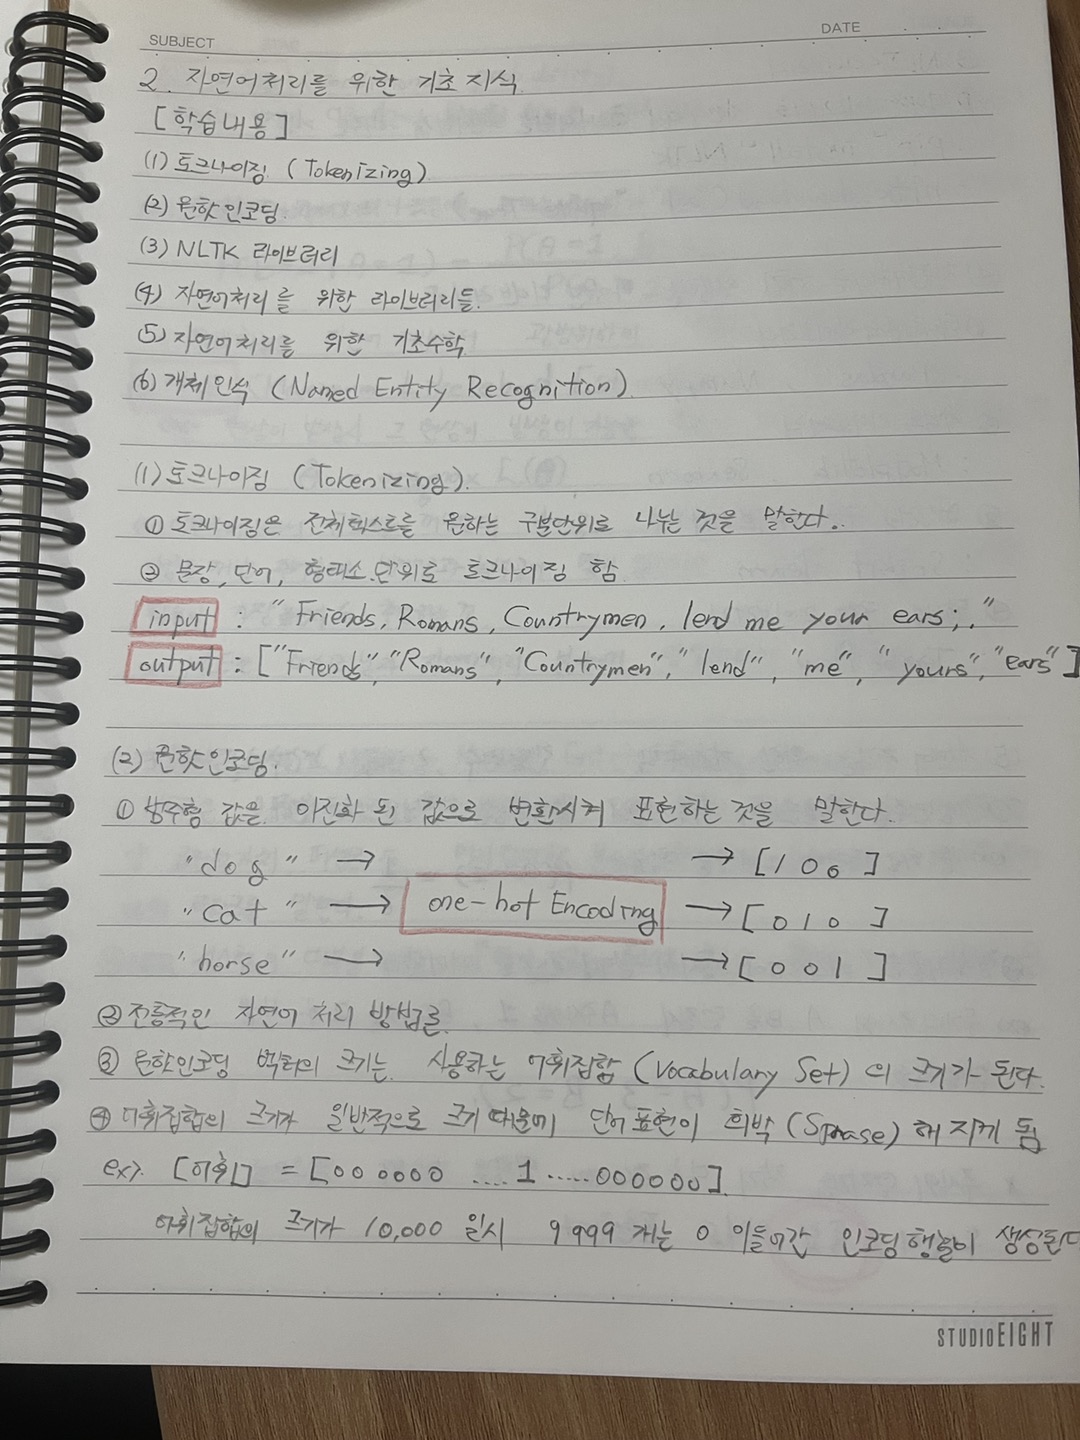 SUBJECT
DATE
2. 자연어처리를 위한 기초지식
[학습내용]
(1) 토크나이징 (Tokenizing)
(2) 원핫인코딩.
(3) NLTK 라이브러리
(4) 자연어처리를 위한 라이브러리들.
(5) 자연어처리를 위한 기초수학
(6) 개체인식 (Named Entity Recognition)
(1) 토크나이징 (Tokenizing).
① 토크나이징은 전체텍스트를 원하는 구분단위로 나눈 것을 말한다.
② 문장, 단어, 형태소 단위로 토크나이징 함
input : "Friends, Romans, Countrymen, lend me your ears;."
output : ["Friends", "Romans", "Countrymen", "lend", "me", "yours", "ears"]
(2) 원핫인코딩.
① 범주형 값을 이진화 된 값으로 변환시켜 표현하는 것을 말한다.
"dog" → → [100]
"cat" → one-hot Encoding → [010]
"horse" → → [001]
② 전통적인 자연어 처리 방법론.
③ 원핫인코딩 벡터의 크기는 사용하는 어휘집합 (Vocabulary Set)의 크기가 된다.
④ 어휘집합의 크기가 일반적으로 크기 때문에 단어표현이 희박 (Sprase) 해 지게 됨
ex). [어휘] = [000000 ....1.....000000]
어휘집합의 크기가 10,000 일시 9999 개는 0 이들어간 인코딩행렬이 생성된다
STUDIOEIGHT